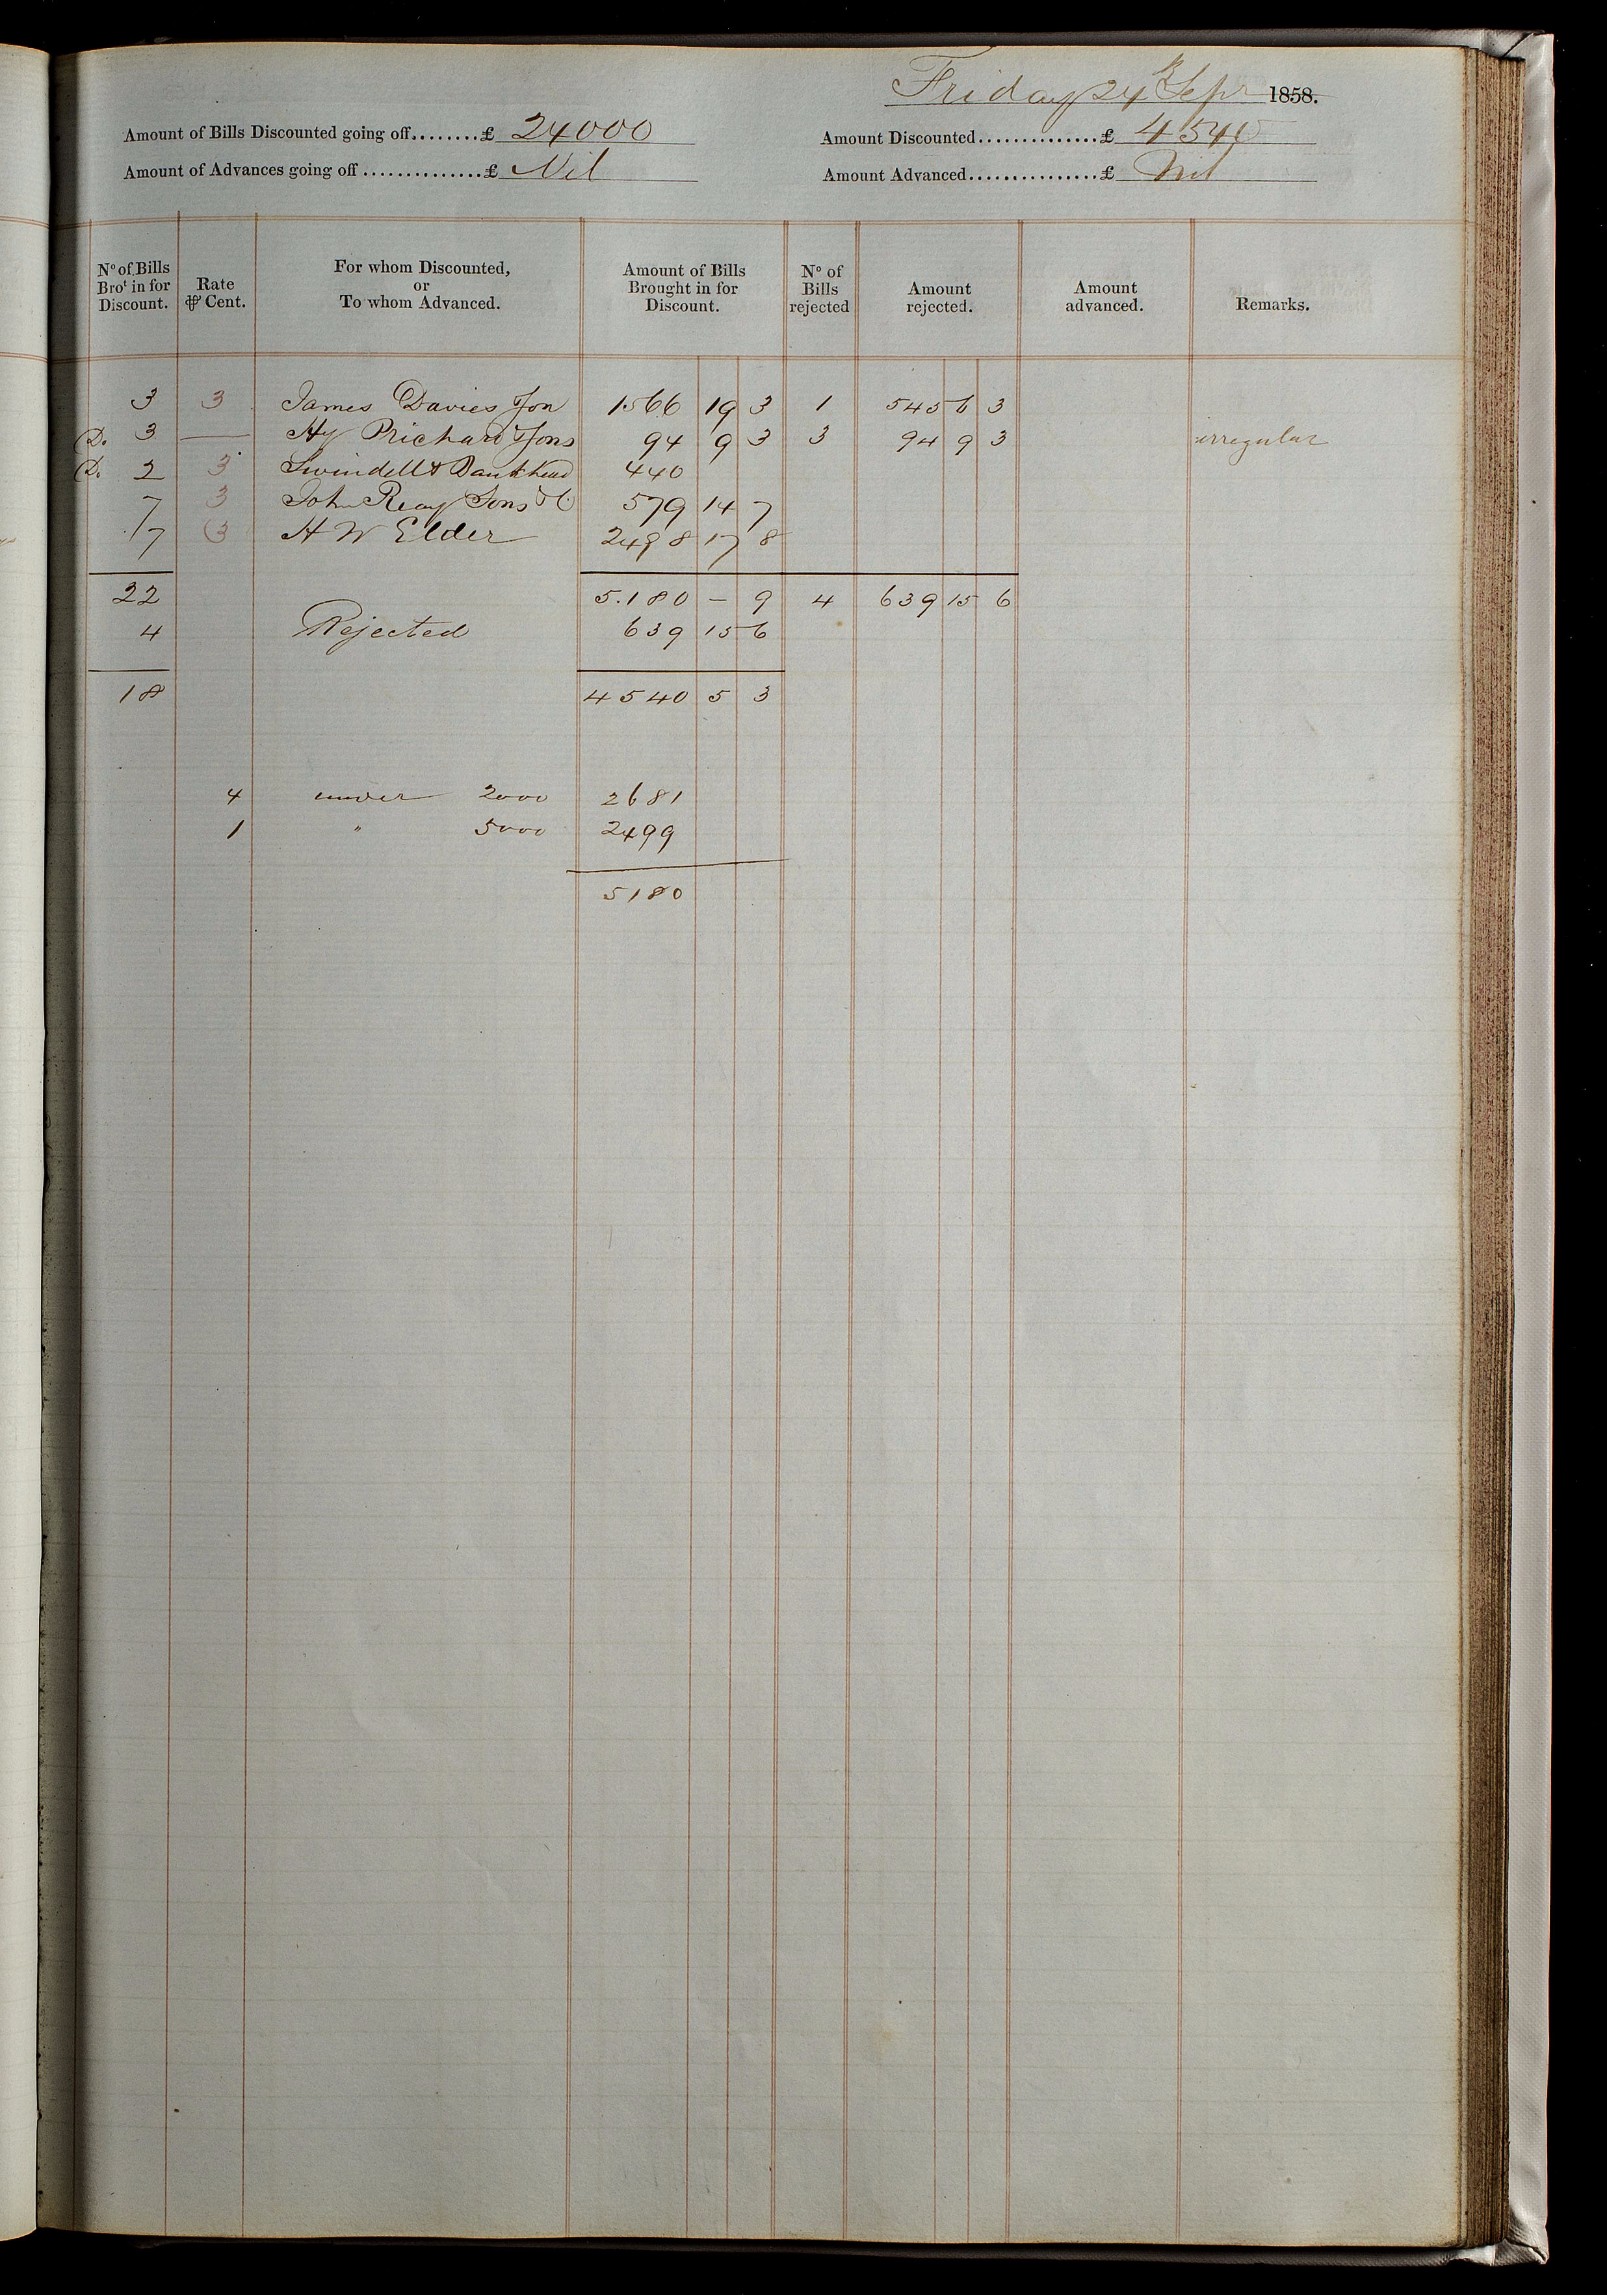 Friday 24th Sepr 1858.
Amount of Bills Discounted going off........£ 24000 Amount Discounted..............£ 4540
Amount of Advances going off..............£ Nil Amount Advanced...............£ Nil
No of Bills Brot in for Discount. Rate ⅌ Cent. For whom Discounted, or To whom Advanced. Amount of Bills Brought in for Discount. No of Bills rejected Amount rejected. Amount advanced. Remarks.
3 3 James Davies & Son 1566 19 3 1 545 6 3
D. 3 — Hy Prichard & Sons 94 9 3 3 94 9 3 irregular
D. 2 3 Swindell & Bankhead 440
7 3 John Reay Sons & Co 579 14 7
7 3 H W Elder 2498 17 8
22 5.180 — 9 4 639 15 6
4 Rejected 639 15 6
18 4540 5 3
4 under 2000 2681
1 " 5000 2499
5180